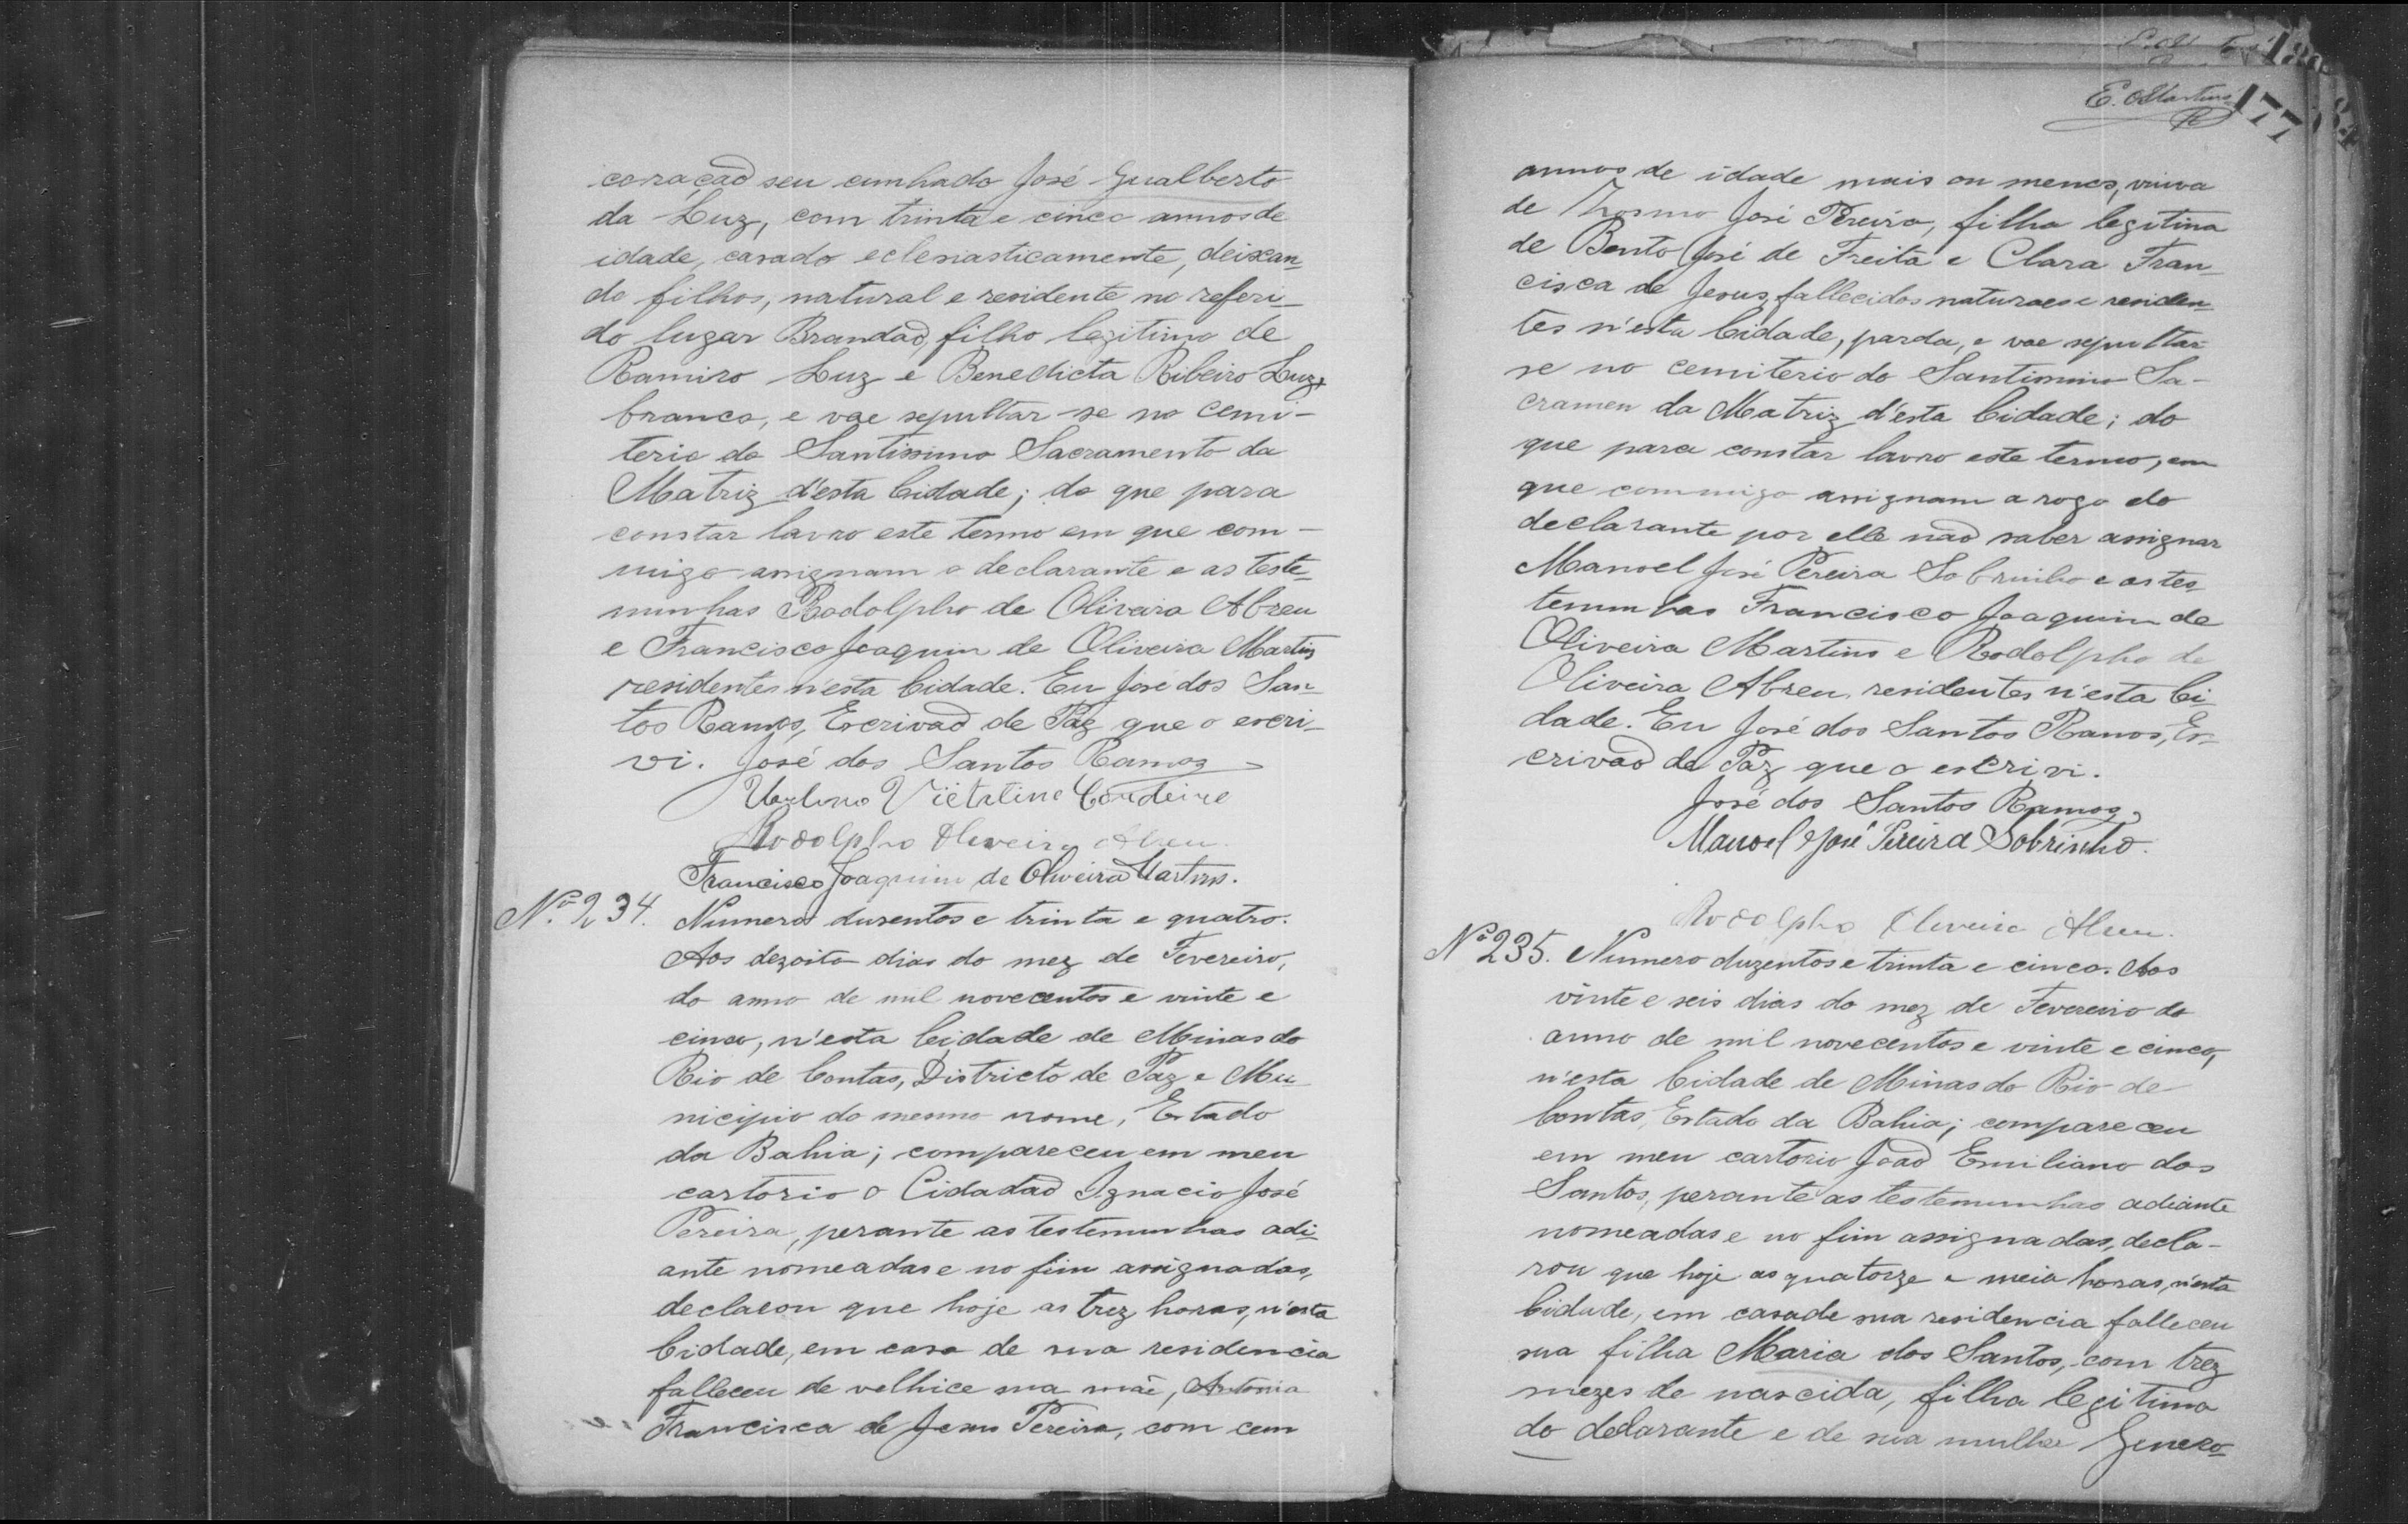 coração seu cunhado José Gualberto
da Luz, com trinta e cinco annos de
idade, casado eclesiasticamente, deixan-
do filhos, natural e residente no referi-
do lugar Brandão, filho legitimo de
Ramiro Luz e Benedicta Ribeiro Luz,
branco, e vae sepultar-se no cemi-
terio do Santissimo Sacramento da
Matriz d'esta Cidade; do que para
constar lavro este termo em que com-
migo assignam o declarante e as teste-
munhas Rodolpho de Oliveira Abreu
e Francisco Joaquim de Oliveira Martins
residentes n'esta Cidade. Eu José dos San-
tos Ramos, Escrivão de Paz que o escri-
vi. José dos Santos Ramos
Cordeiro
Rodolpho Oliveira Abreu.
Francisco Joaquim de Oliveira Martins.
Nº 234. Numero dusentos e trinta e quatro.
Aos dezoito dias do mez de Fevereiro,
do anno de mil novecentos e vinte e
cinco, n'esta Cidade de Minas do
Rio de Contas, Districto de Paz e Mu-
nicipio do mesmo nome, Estado
da Bahia; compareceu em meu
cartorio o Cidadão Ignacio José
Pereira, perante as testemunhas adi-
ante nomeadas e no fim assignadas,
declarou que hoje as trez horas, n'esta
Cidade, em casa de sua residencia
falleceu de velhice sua mãe, Antonia
Francisca de Jesus Pereira, com cem
E. Martins
177
annos de idade mais ou menos, viuva
de José Pereira, filha legitima
de Bento José de Freita e Clara Fran-
cisca de Jesus, fallecidos naturaes e residen-
tes n'esta Cidade, parda, e vae sepultar-
se no cemiterio do Santissimo Sa-
cramen da Matriz d'esta Cidade; do
que para constar lavro este termo, em
que commigo assignam a rogo do
declarante por elle não saber assignar
Manoel José Pereira Sobrinho e as tes-
temunhas Francisco Joaquim de
Oliveira Martins e Rodolpho de
Oliveira Abreu, residentes n'esta Ci-
dade. Eu José dos Santos Ramos, Es-
crivão de Paz que o escrivi.
José dos Santos Ramos
Manoel José Pereira Sobrinho.
Rodolpho Oliveira Abreu.
Nº 235. Numero duzentos e trinta e cinco. Aos
vinte e seis dias do mez de Fevereiro do
anno de mil novecentos e vinte e cinco,
n'esta Cidade de Minas do Rio de
Contas, Estado da Bahia; compareceu
em meu cartorio João Emiliano dos
Santos, perante as testemunhas adiante
nomeadas e no fim assignadas, decla-
rou que hoje as quatorze e meia horas, n'esta
Cidade, em casa de sua residencia falleceu
sua filha Maria dos Santos, com trez
mezes de nascida, filha legitima
do declarante e de sua mulher Genero-